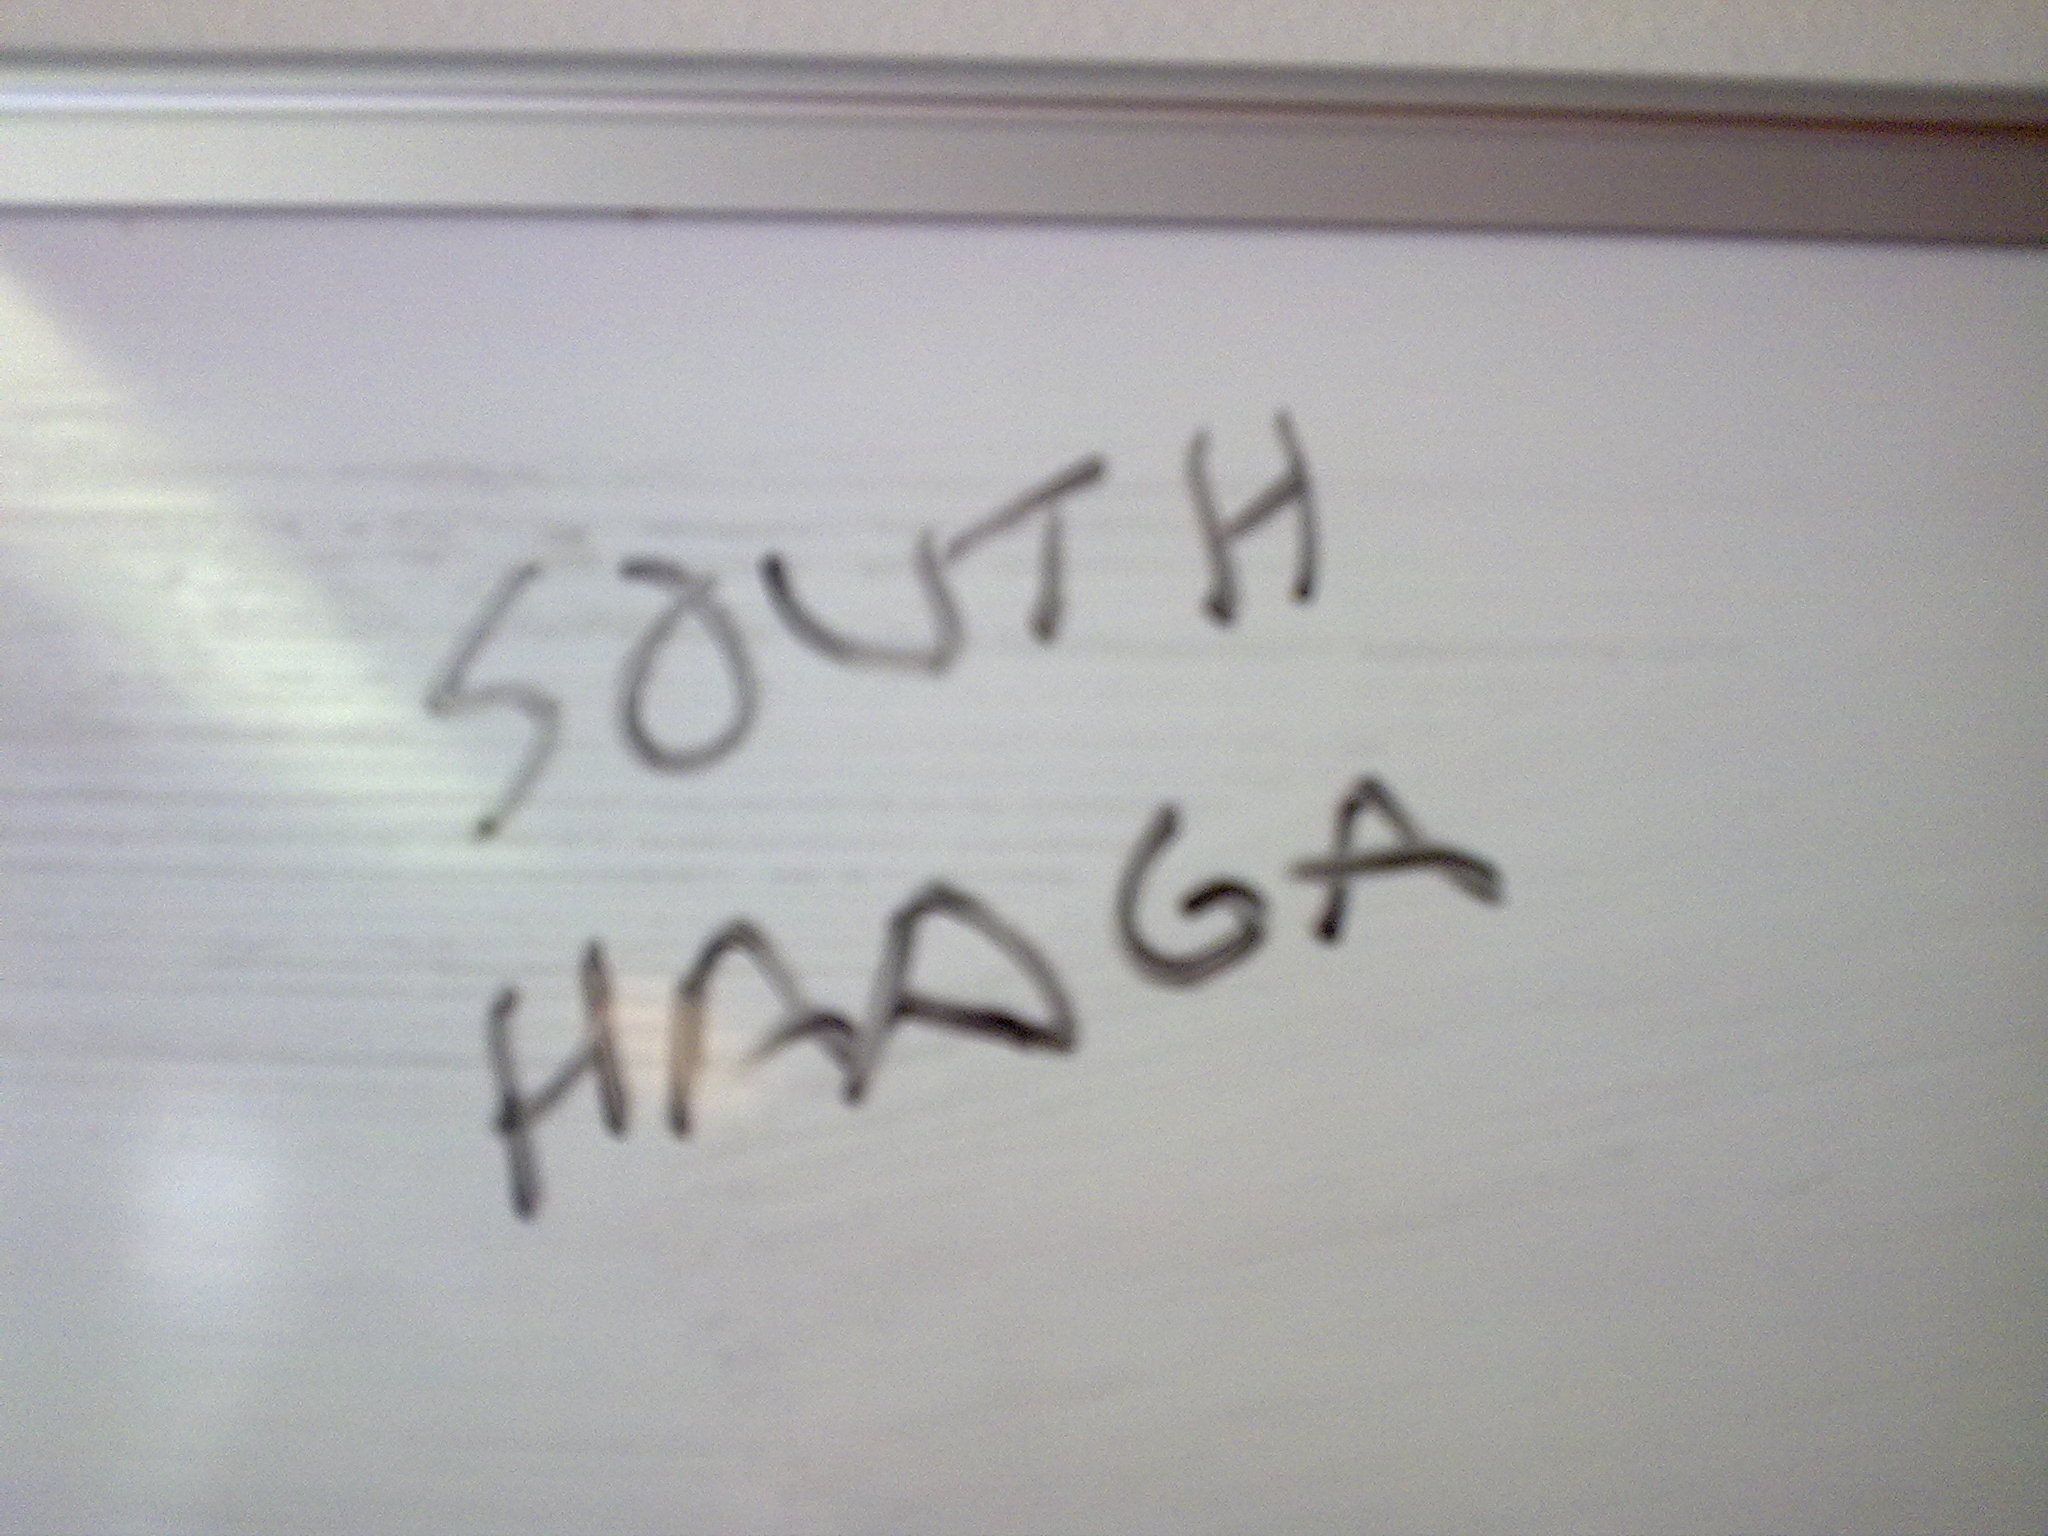 SOUTH
HAAGA